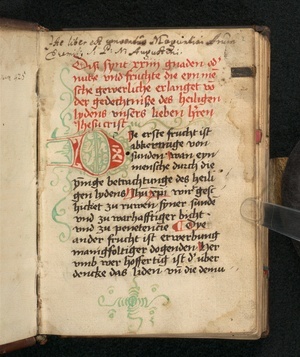 Dis synt xxiiii gnaden od
nutze vnd fruchte die eyn me
sche gewerliche erlanget vo
der gedechtniße des heiligen
lydens vnsers lieben h'ren
Jhesu crist
Die erste frucht ist
abkerunge von
sunden Wan eyn
mensche durch die
ynnige betrachtunge des heili
gen lydens Jhesu xpi wirt ges
chicket zu ruwen syner sunde
vnd zu warhafftiger bicht
vnd zu penetencie Dye
ander frucht ist erwerbung
manigfoltiger dogenden Wer
vmb wer hoffertig ist d' vber
dencke das liden vnd die demu